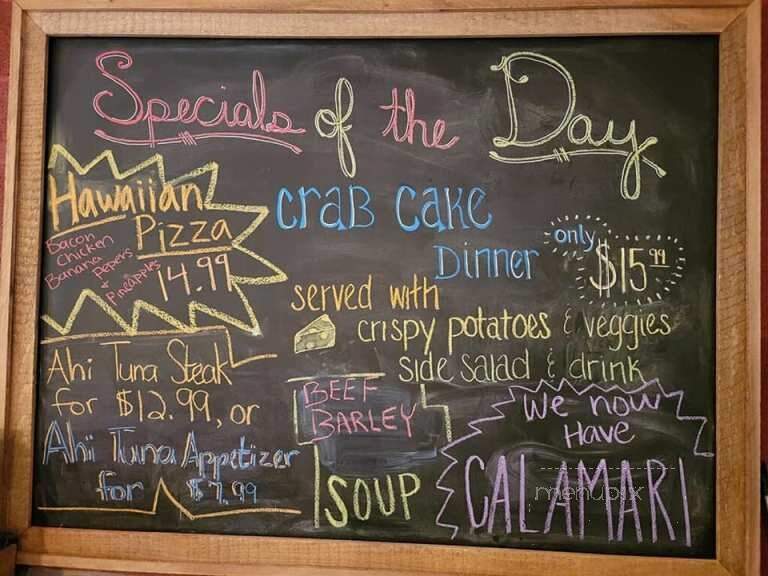 Specials of the Day
Hawaiian
Pizza
Bacon
Chicken
Banana Pepers
& Pineapples
14.99
Crab Cake
Dinner
only
$15.99
served with
crispy potatoes & veggies
side salad & drink
Ahi Tuna Steak
for $12.99, or
Ahi Tuna Appetizer
for $7.99
BEEF
BARLEY
SOUP
We now
Have
CALAMARI
menupix